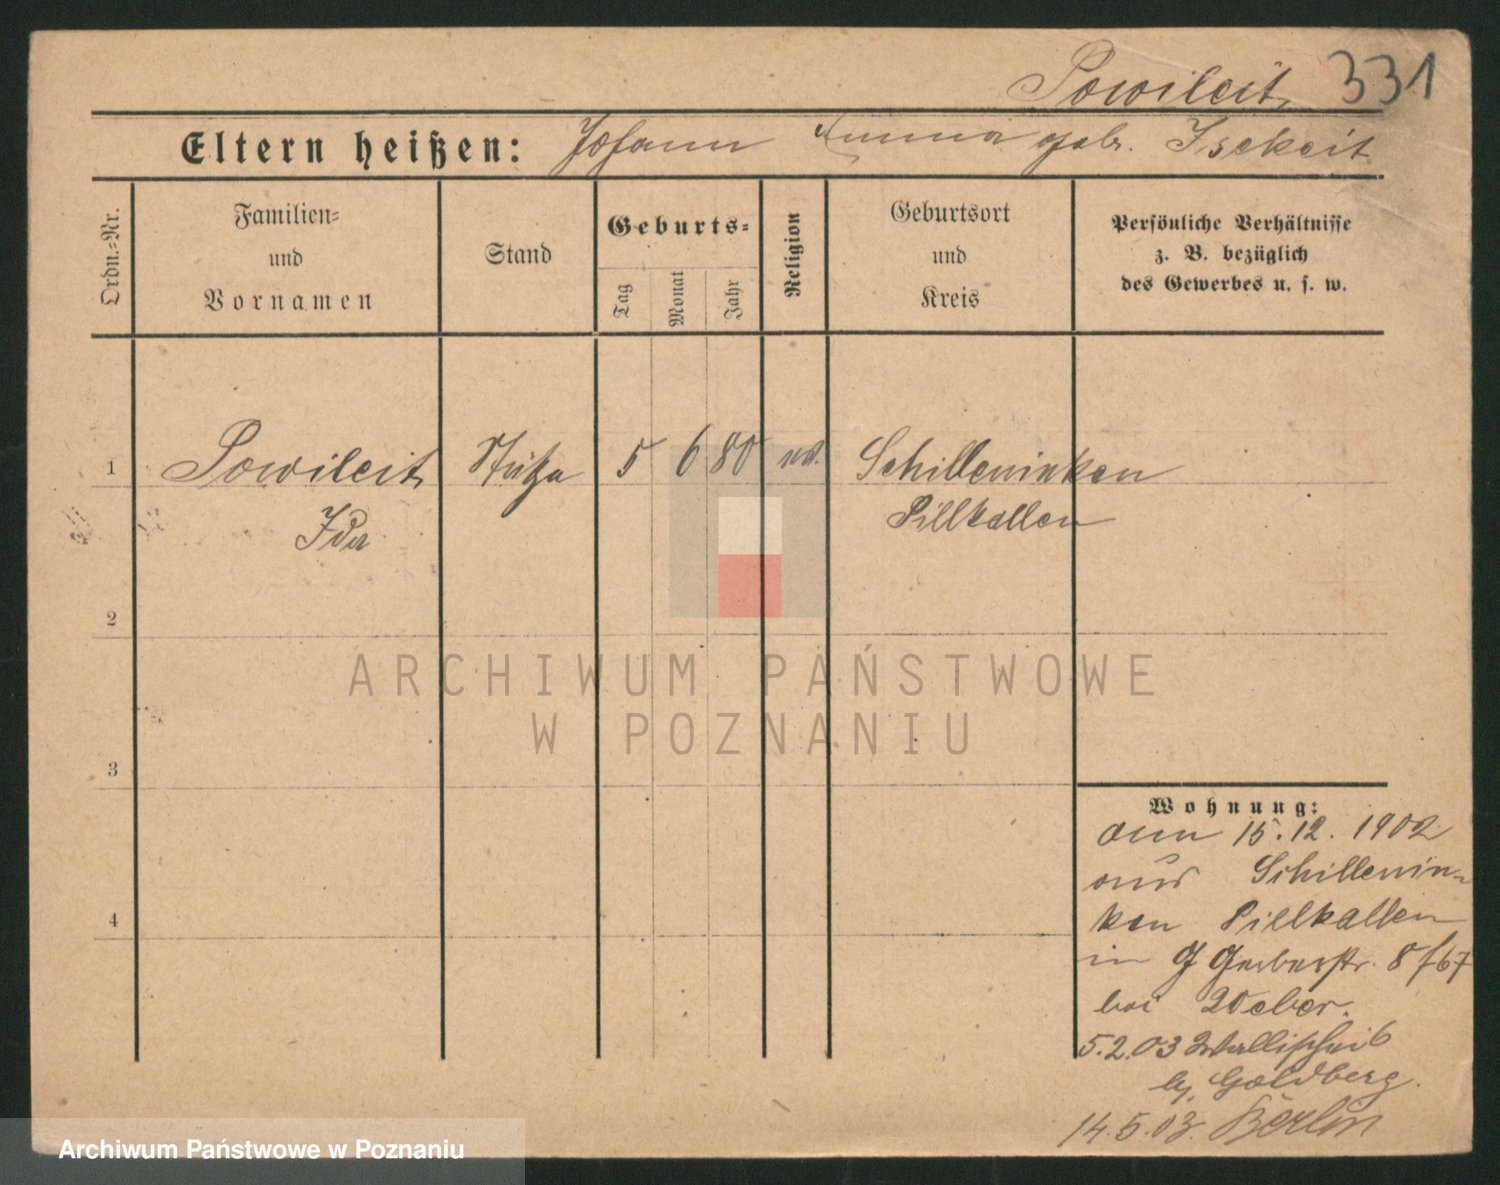 Powileit 331
Eltern heißen: Johann Anna geb. Isekeit
Ordn.-Nr.
Familien-
und
Vornamen
Stand
Geburts-
Tag
Monat
Jahr
Religion
Geburtsort
und
Kreis
Persönliche Verhältnisse
z. B. bezüglich
des Gewerbes u. s. w.
1 Powileit Stütze 5 6 80 ev. Schilleninken
Ida Pillkallen
2
3
4
ARCHIWUM PAŃSTWOWE
W POZNANIU
Wohnung:
am 15.12.1902
aus Schillenin-
ken Pillkallen
in G Gerberstr. 8/67
bei Weber.
5.2.03 Wallischei 6
b. Goldberg.
14.5.03. Berlin
Archiwum Państwowe w Poznaniu